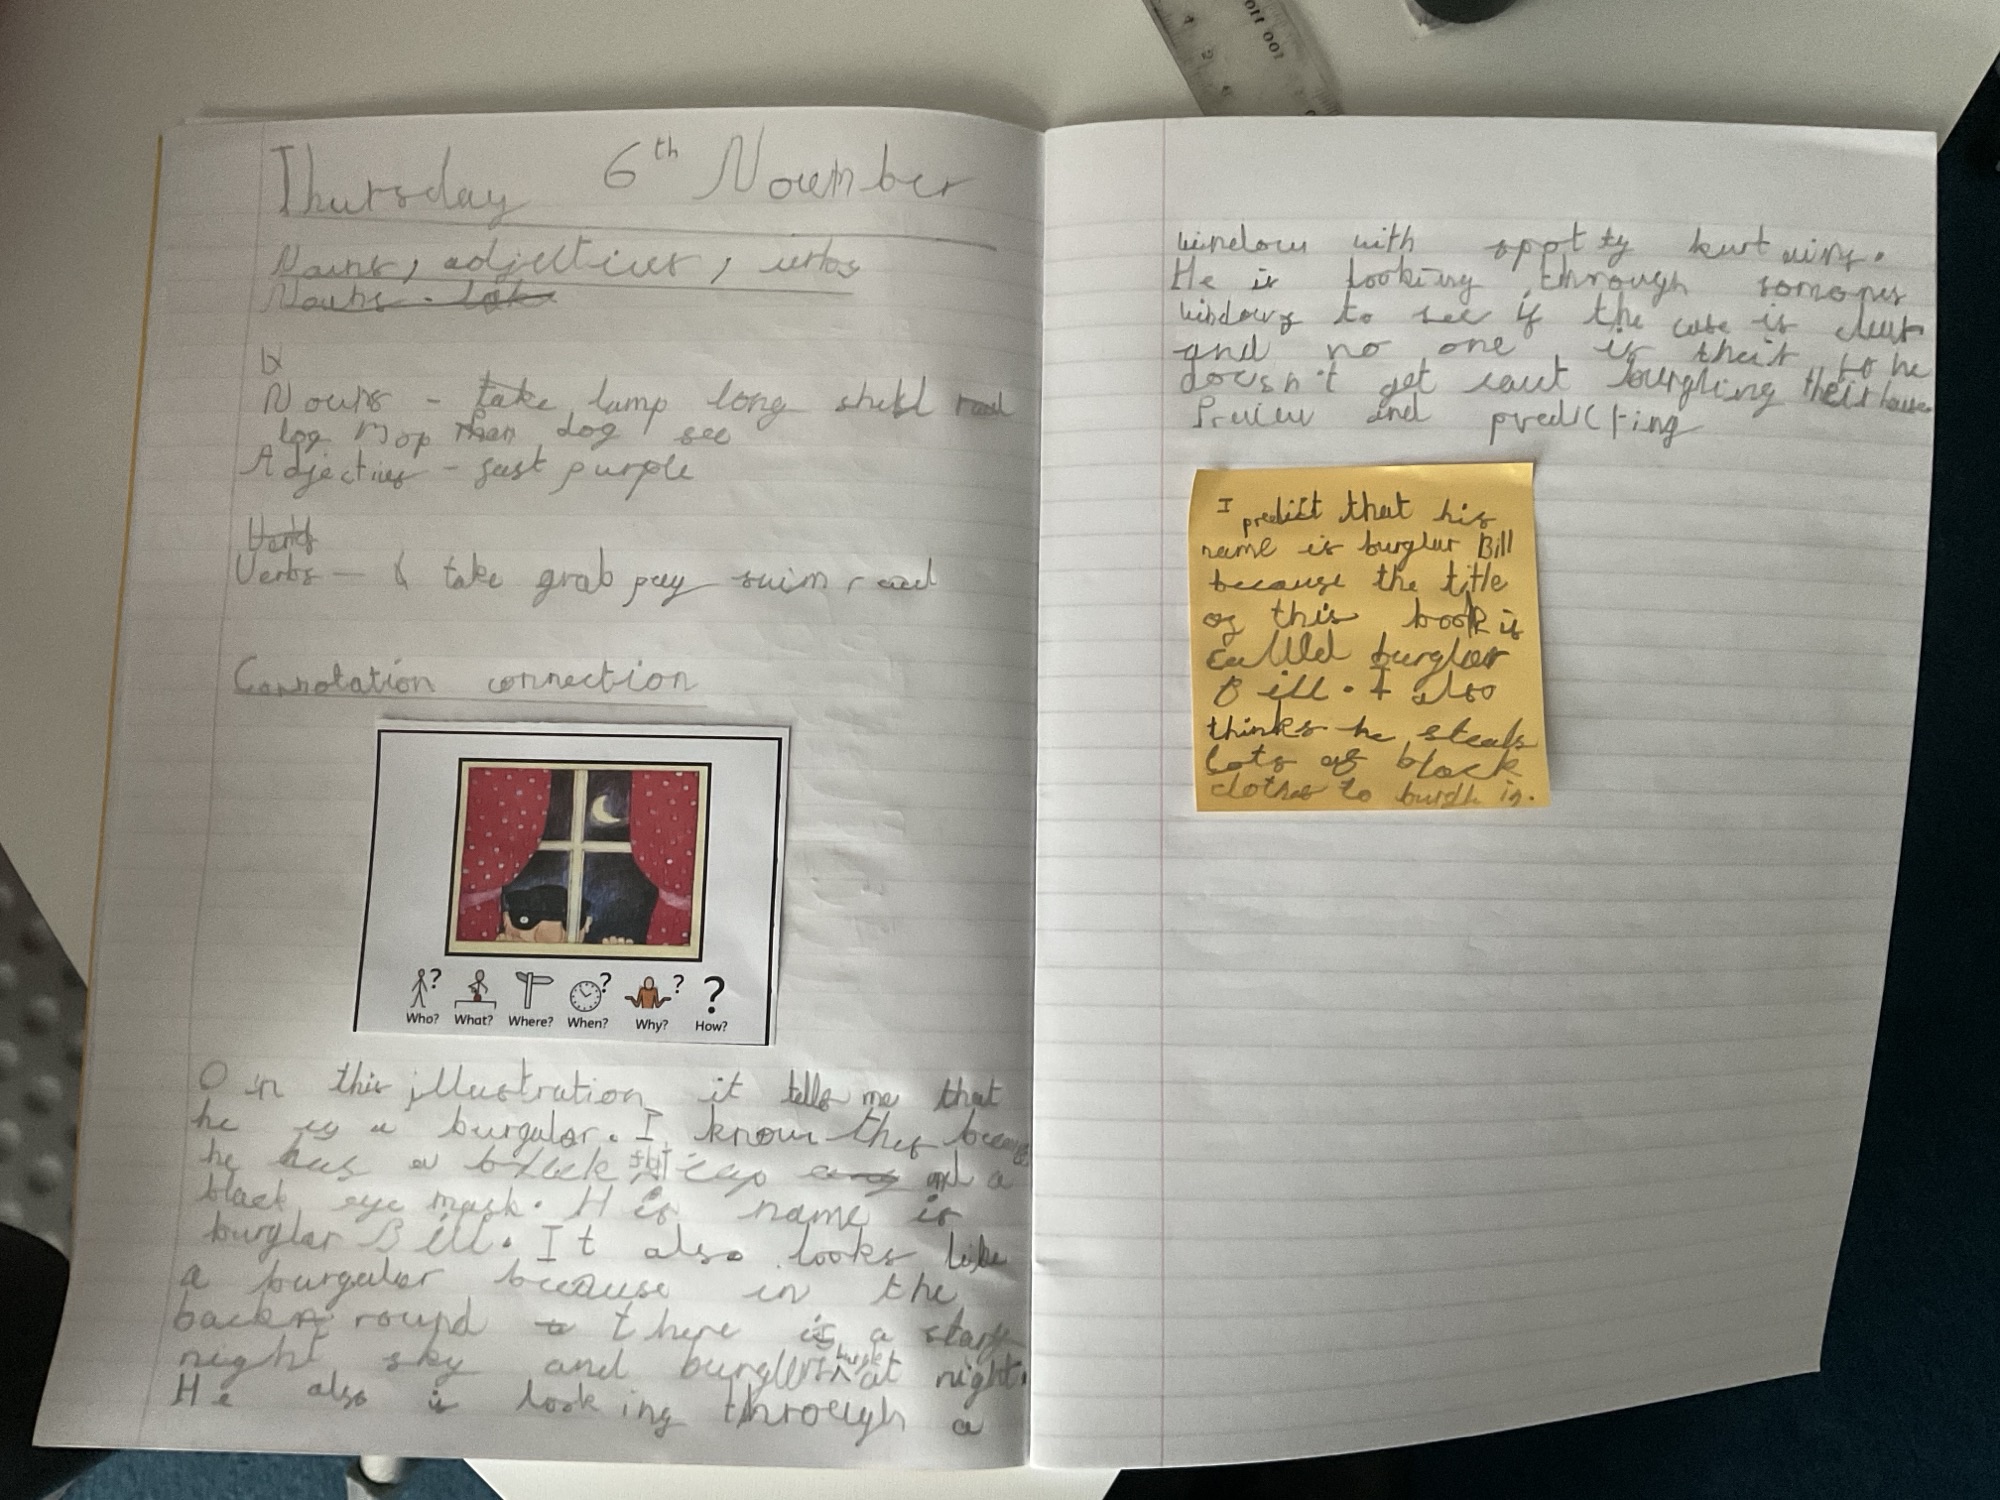 Thursday 6th November
Nouns, adjectives, verbs
Nouns - take
Nouns - take lamp long shell read
log Mop Man dog see
Adjectives - fast purple
Verbs
Verbs - take grab pay swim read
Connotation connection
Who? What? Where? When? Why? How?
In this illustration it tells me that
he is a burgular. I know this because
he has a black flat cap and a
black eye mask. His name is
burglar Bill. It also looks like
a burgular because in the
backround there is a starry
night sky and burglers burgle at night.
He also is looking through a
window with spotty kurtains.
He is looking through somones
windows to see if the cose is clear
and no one is their so he
doesn't get caut burgling their house
Preview and predicting
I predict that his
name is burglar Bill
because the title
of this book is
called burglar
Bill. I also
thinks he steals
lots of black
clothes to in.
100 110